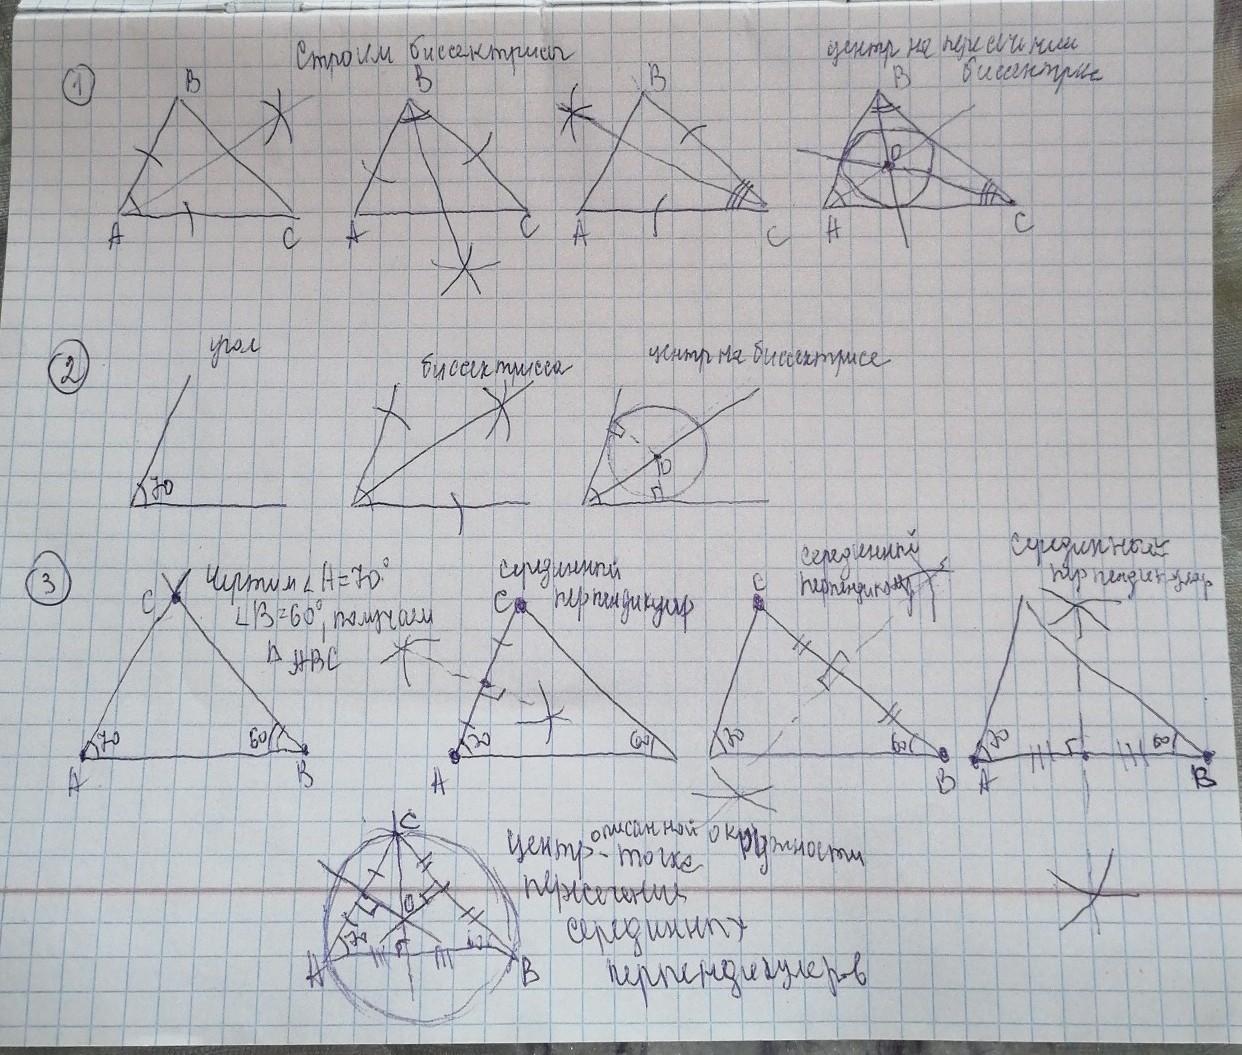 Строим биссектрисы
центр на пересечении
биссектрис
1
B
B
B
B
O
A
C
A
C
A
C
A
C
2
угол
биссектрисса
центр на биссектрисе
70
O
3
C
Чертим ∠A=70°
∠B=60°, получаем
△ ABC
70
60
A
B
серединный
перпендикуляр
C
70
60
A
серединный
перпендикуляр
C
70
60
B
серединный
перпендикуляр
70
60
A
B
C
O
70
60
A
B
центр описанной окружности
- точка
пересечения
серединных
перпендикуляров